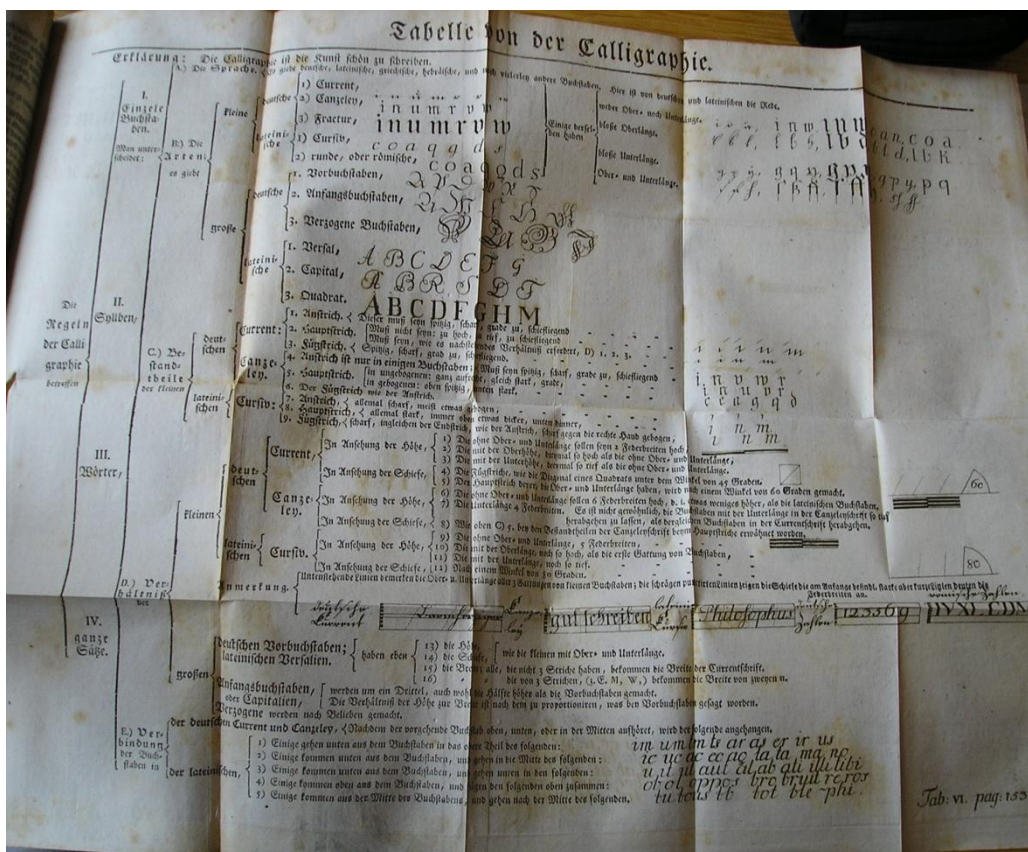 Tabelle von der Calligraphie.
Erklärung: Die Calligraphie ist die Kunst schön zu schreiben.
A.) Die Sprache. Es giebt deutsche, lateinische, griechische, hebräische, und noch vielerley andere Buchstaben. Hier ist von deutschen und lateinischen die Rede.
Die Regeln der Calligraphie betreffen
I. Einzele Buchstaben.
Man unterscheidet:
II. Syllben,
III. Wörter,
IV. ganze Sätze.
B.) Die Arten: es giebt
kleine
deutsche
1) Current,
2) Canzeley,
i n u m r v w
3) Fractur,
i n u m r v w
lateinische
1) Cursiv,
c o a q g d s
2) runde, oder römische,
c o a g q d s
Einige derselben haben
weder Ober- noch Unterlänge.
bloße Oberlänge.
bloße Unterlänge.
Ober- und Unterlänge.
große
deutsche
1. Vorbuchstaben,
2. Anfangsbuchstaben,
3. Verzogene Buchstaben,
lateinische
1. Versal,
A B C D E F G
2. Capital,
A B R S D T
3. Quadrat.
ABCDFGHM
C.) Bestandtheile der kleinen
deutschen
Current:
1. Anstrich. Dieser muß seyn spitzig, scharf, grade zu, schiefliegend
2. Hauptstrich. Muß nicht seyn: zu hoch, zu tief, zu schiefliegend
Muß seyn, wie es nachstehendes Verhältniß erfordert, D) 1, 2, 3,
3. Fügstrich. Spitzig, scharf, grad zu, schiefliegend.
Canzeley.
4. Anstrich ist nur in einigen Buchstaben; Muß seyn spitzig, scharf, grade zu, schiefliegend
5. Hauptstrich. in ungebogenen: ganz aufrecht, gleich stark, grade,
in gebogenen: oben spitzig, unten stark.
6. Der Fügstrich wie der Anstrich.
lateinischen
Cursiv:
7. Anstrich, allemal scharf, meist etwas gebogen,
8. Hauptstrich, allemal stark, immer oben etwas dicker, unten dünner,
9. Fügstrich, scharf, ingleichen der Endstrich, wie der Anstrich, scharf gegen die rechte Hand gebogen,
D.) Verhältniß der
kleinen
deutschen
Current,
In Ansehung der Höhe,
1) Die ohne Ober- und Unterlänge sollen seyn 2 Federbreiten hoch,
2) Die mit der Oberhöhe, dreymal so hoch als die ohne Ober- und Unterlänge,
3) Die mit der Unterhöhe, dreymal so tief als die ohne Ober- und Unterlänge.
In Ansehung der Schiefe,
4) Die Fügstriche, wie die Diagonal eines Quadrats unter dem Winkel von 45 Graden.
5) Der Hauptstrich derer, die Ober- und Unterlänge haben, wird nach einem Winkel von 60 Graden gemacht.
60
Canzeley.
In Ansehung der Höhe,
6) Die ohne Ober- und Unterlänge sollen 6 Federbreiten hoch, d. i. etwas weniges höher, als die lateinischen Buchstaben.
7) Die Unterlänge 4 Federbreiten. Es ist nicht gewöhnlich, die Buchstaben mit der Unterlänge in der Canzeleyschrift so tief herabgehen zu lassen, als dergleichen Buchstaben in der Currentschrift herabgehen.
In Ansehung der Schiefe,
8) Wie oben C) 5. bey den Bestandtheilen der Canzeleyschrift beym Hauptstriche erwähnet worden.
lateinischen
Cursiv.
In Ansehung der Höhe,
9) Die ohne Ober- und Unterlänge, 5 Federbreiten,
10) Die mit der Oberlänge, noch so hoch, als die erste Gattung von Buchstaben,
11) Die mit der Unterlänge, noch so tief.
In Ansehung der Schiefe,
12) Nach einem Winkel von 80 Graden.
80
Anmerkung.
Untenstehende Linien bemerken die Ober- u. Unterlänge aller 3 Gattungen von kleinen Buchstaben; die schrägen punktirten Linien zeigen die Schiefe
gut schreiben
Philosophus
großen
deutschen Vorbuchstaben;
lateinischen Versalien.
haben eben
13) die Höhe,
14) die Schiefe,
wie die kleinen mit Ober- und Unterlänge.
15) die Breite; alle, die nicht 3 Striche haben, bekommen die Breite der Currentschrift.
16) die von 3 Strichen, (z. E. M, W,) bekommen die Breite von zweyen n.
Anfangsbuchstaben, oder Capitalien,
werden um ein Drittel, auch wohl die Hälfte höher als die Vorbuchstaben gemacht.
Die Verhältniß der Höhe zur Breite ist nach dem zu proportioniren, was bey Vorbuchstaben gesagt worden.
Verzogene werden nach Belieben gemacht.
E.) Verbindung der Buchstaben in
der deutschen Current und Canzeley, Nachdem der vorgehende Buchstab oben, unten, oder in der Mitten aufhöret, wird der folgende angehangen.
der lateinischen,
1) Einige gehen unten aus dem Buchstaben in das obere Theil des folgenden:
im um im ts ar as er ir us
2) Einige kommen unten aus dem Buchstaben, und gehen in die Mitte des folgenden:
3) Einige kommen unten aus dem Buchstaben, und gehen unten in den folgenden:
4) Einige kommen oben aus dem Buchstaben, und fügen den folgenden oben zusammen:
5) Einige kommen aus der Mitte des Buchstabens, und gehen nach der Mitte des folgenden.
Tab: VI. pag: 153